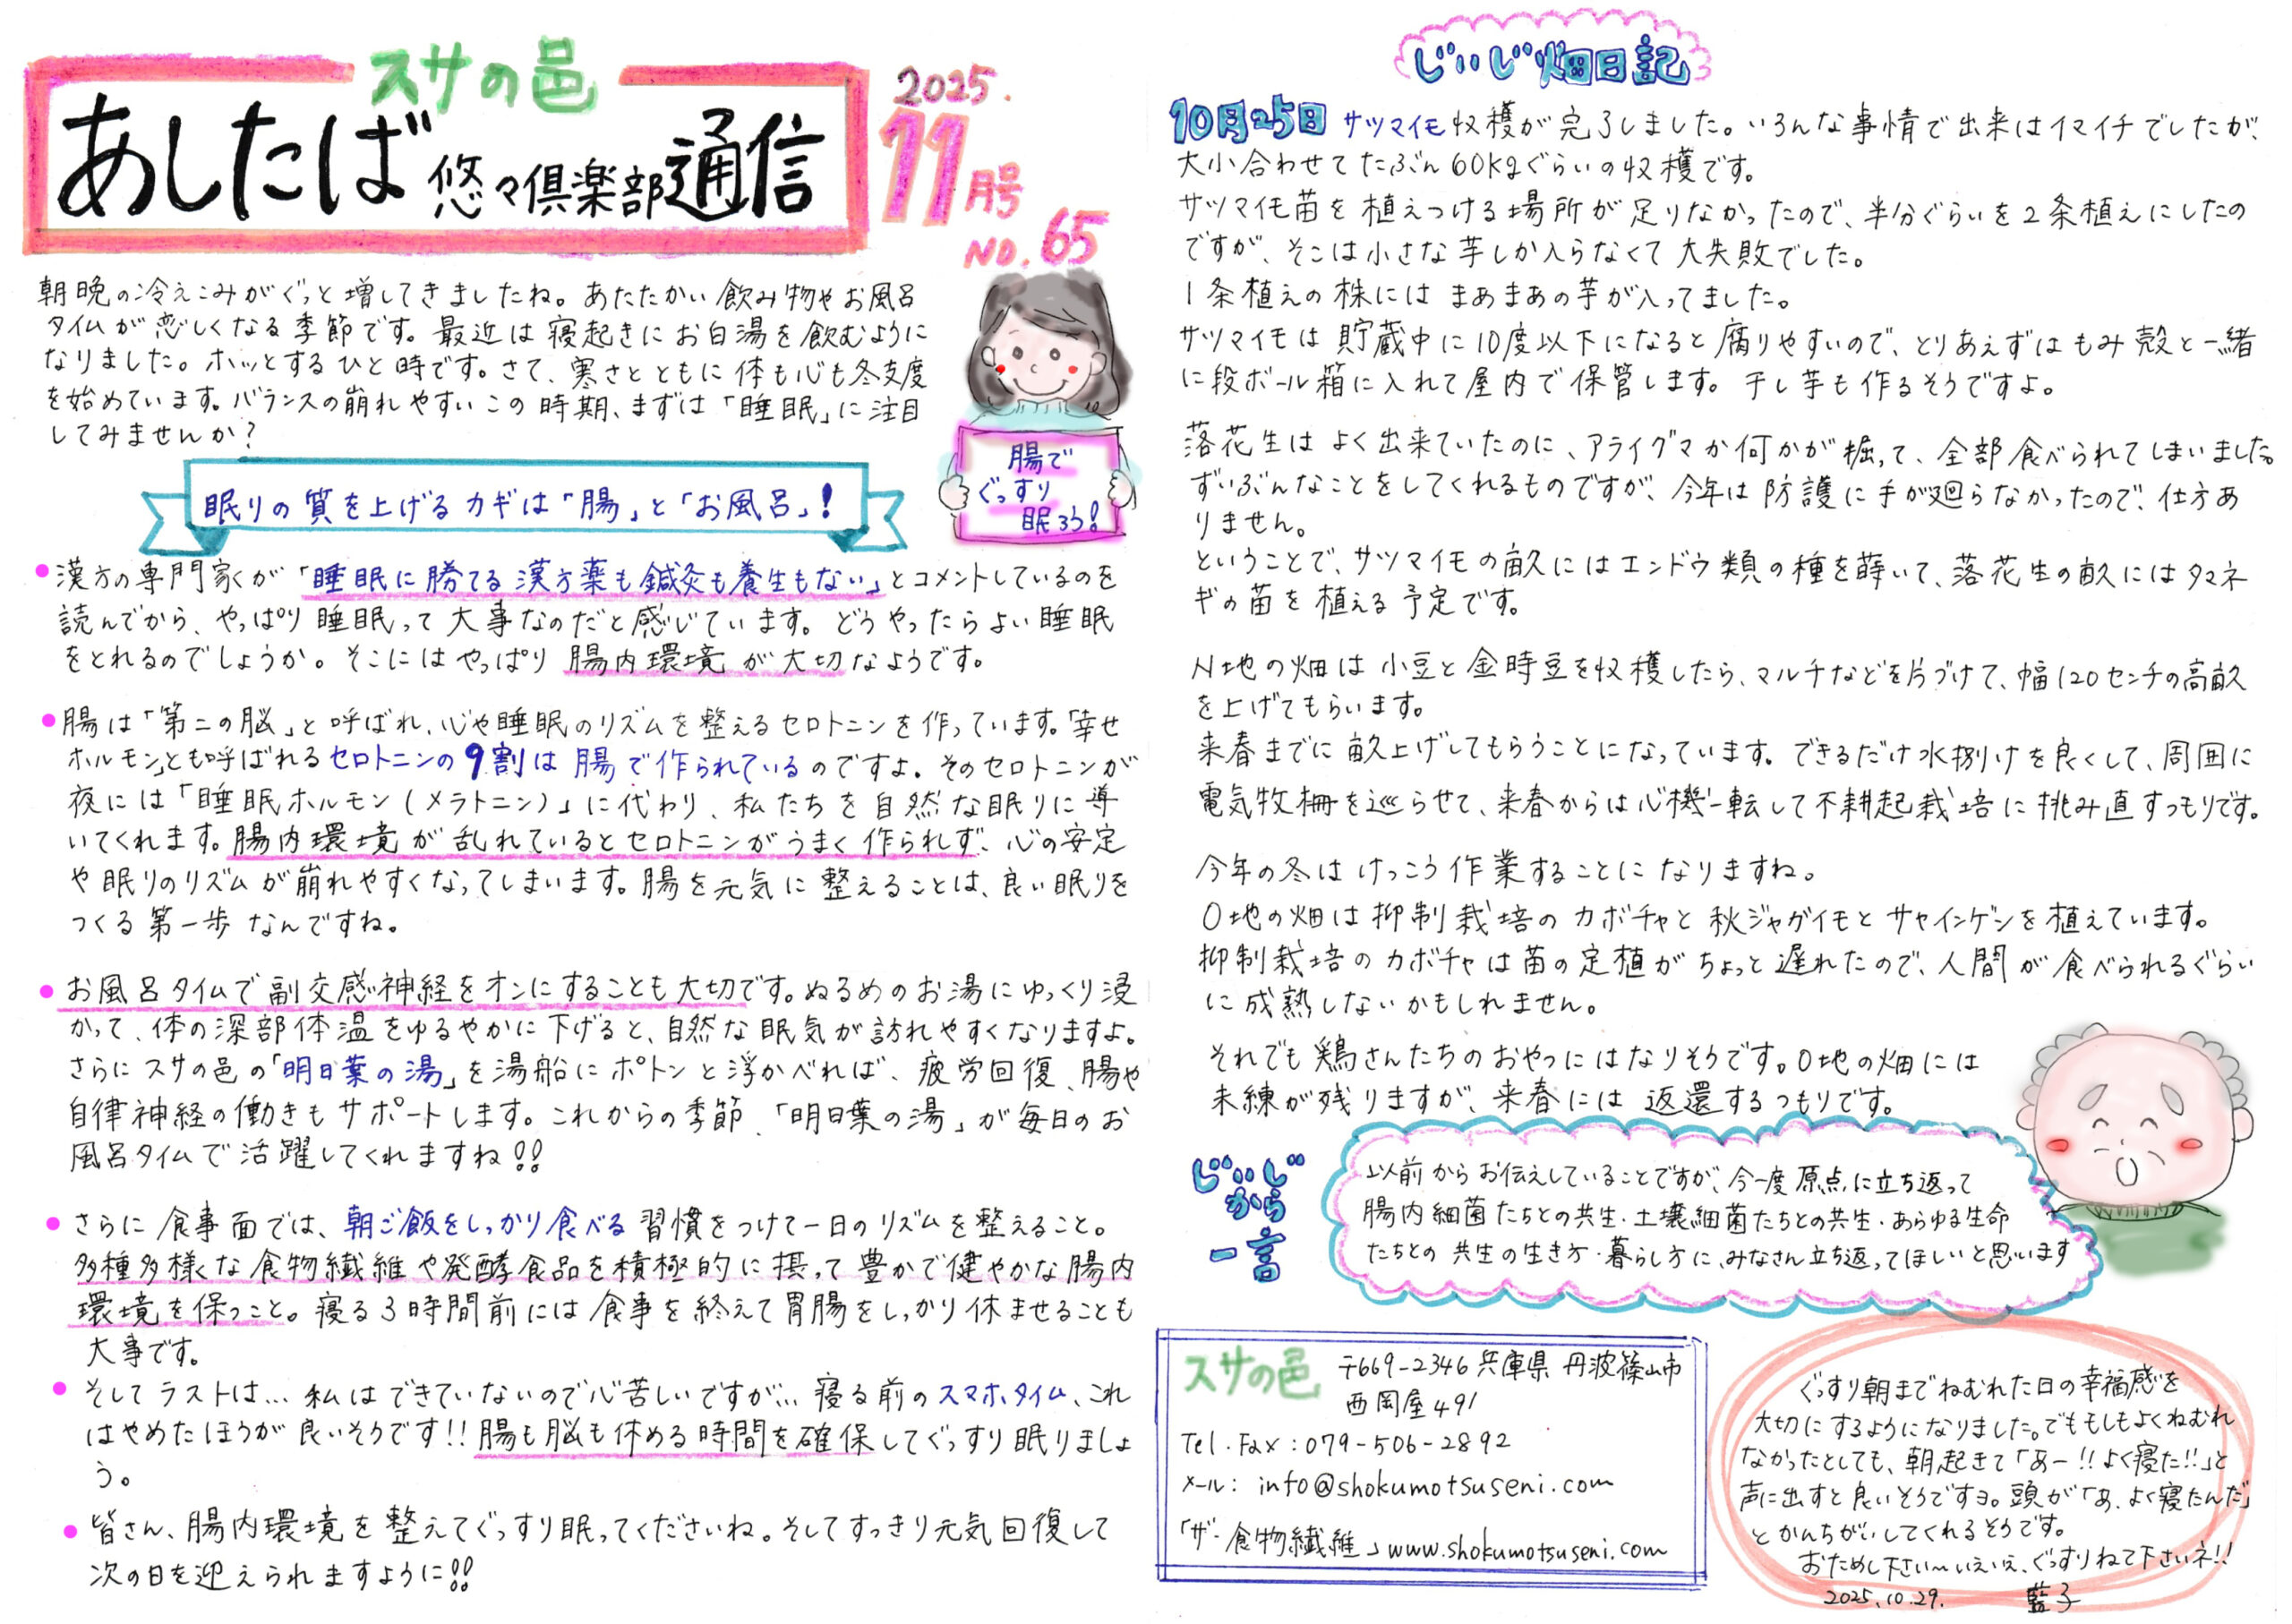 スサの邑
あしたば悠々倶楽部通信
2025.
11月号
NO.65
朝晩の冷えこみがぐっと増してきましたね。あたたかい飲み物やお風呂
タイムが恋しくなる季節です。最近は寝起きにお白湯を飲むように
なりました。ホッとするひと時です。さて、寒さとともに体も心も冬支度
を始めています。バランスの崩れやすいこの時期、まずは「睡眠」に注目
してみませんか?
腸で
ぐっすり
眠ろう!
眠りの質を上げるカギは「腸」と「お風呂」!
●漢方の専門家が「睡眠に勝てる漢方薬も鍼灸も養生もない」とコメントしているのを
読んでから、やっぱり睡眠って大事なのだと感じています。どうやったらよい睡眠
をとれるのでしょうか。そこにはやっぱり腸内環境が大切なようです。
●腸は「第二の脳」と呼ばれ、心や睡眠のリズムを整えるセロトニンを作っています。「幸せ
ホルモン」とも呼ばれるセロトニンの9割は腸で作られているのですよ。そのセロトニンが
夜には「睡眠ホルモン(メラトニン)」に代わり、私たちを自然な眠りに導
いてくれます。腸内環境が乱れているとセロトニンがうまく作られず、心の安定
や眠りのリズムが崩れやすくなってしまいます。腸を元気に整えることは、良い眠りを
つくる第一歩なんですね。
●お風呂タイムで副交感神経をオンにすることも大切です。ぬるめのお湯にゆっくり浸
かって、体の深部体温をゆるやかに下げると、自然な眠気が訪れやすくなりますよ。
さらにスサの邑の「明日葉の湯」を湯船にポトンと浮かべれば、疲労回復、腸や
自律神経の働きもサポートします。これからの季節、「明日葉の湯」が毎日のお
風呂タイムで活躍してくれますね!!
●さらに食事面では、朝ご飯をしっかり食べる習慣をつけて一日のリズムを整えること。
多種多様な食物繊維や発酵食品を積極的に摂って豊かで健やかな腸内
環境を保つこと。寝る3時間前には食事を終えて胃腸をしっかり休ませることも
大事です。
●そしてラストは…私はできていないので心苦しいですが…寝る前のスマホタイム、これ
はやめたほうが良いそうです!!腸も脳も休める時間を確保してぐっすり眠りましょ
う。
●皆さん、腸内環境を整えてぐっすり眠ってくださいね。そしてすっきり元気回復して
次の日を迎えられますように!!
じいじ畑日記
10月25日 サツマイモ収穫が完了しました。いろんな事情で出来はイマイチでしたが、
大小合わせてたぶん60kgぐらいの収穫です。
サツマイモ苗を植えつける場所が足りなかったので、半分ぐらいを2条植えにしたの
ですが、そこは小さな芋しか入らなくて大失敗でした。
1条植えの株にはまあまあの芋が入ってました。
サツマイモは貯蔵中に10度以下になると腐りやすいので、とりあえずはもみ殻と一緒
に段ボール箱に入れて屋内で保管します。干し芋も作るそうですよ。
落花生はよく出来ていたのに、アライグマか何かが掘って、全部食べられてしまいました。
ずいぶんなことをしてくれるものですが、今年は防護に手が廻らなかったので、仕方あ
りません。
ということで、サツマイモの畝にはエンドウ類の種を蒔いて、落花生の畝にはタマネ
ギの苗を植える予定です。
N地の畑は小豆と金時豆を収穫したら、マルチなどを片づけて、幅120センチの高畝
を上げてもらいます。
来春までに畝上げしてもらうことになっています。できるだけ水捌けを良くして、周囲に
電気牧柵を巡らせて、来春からは心機一転して不耕起栽培に挑み直すつもりです。
今年の冬はけっこう作業することになりますね。
O地の畑は抑制栽培のカボチャと秋ジャガイモとサヤインゲンを植えています。
抑制栽培のカボチャは苗の定植がちょっと遅れたので、人間が食べられるぐらい
に成熟しないかもしれません。
それでも鶏さんたちのおやつにはなりそうです。O地の畑には
未練が残りますが、来春には返還するつもりです。
じいじ
から
一言
以前からお伝えしていることですが、今一度原点に立ち返って
腸内細菌たちとの共生・土壌細菌たちとの共生・あらゆる生命
たちとの共生の生き方・暮らし方に、みなさん立ち返ってほしいと思います
スサの邑 〒669-2346 兵庫県丹波篠山市
西岡屋491
Tel.Fax:079-506-2892
メール: info@shokumotsuseni.com
「ザ・食物繊維」www.shokumotsuseni.com
ぐっすり朝までねむれた日の幸福感を
大切にするようになりました。でももしもよくねむれ
なかったとしても、朝起きて「あー!!よく寝た!!」と
声に出すと良いそうですヨ。頭が「あ、よく寝たんだ」
とかんちがいしてくれるそうです。
おためし下さい〜いえいえ、ぐっすりねて下さいネ!!
2025.10.29. 藍子